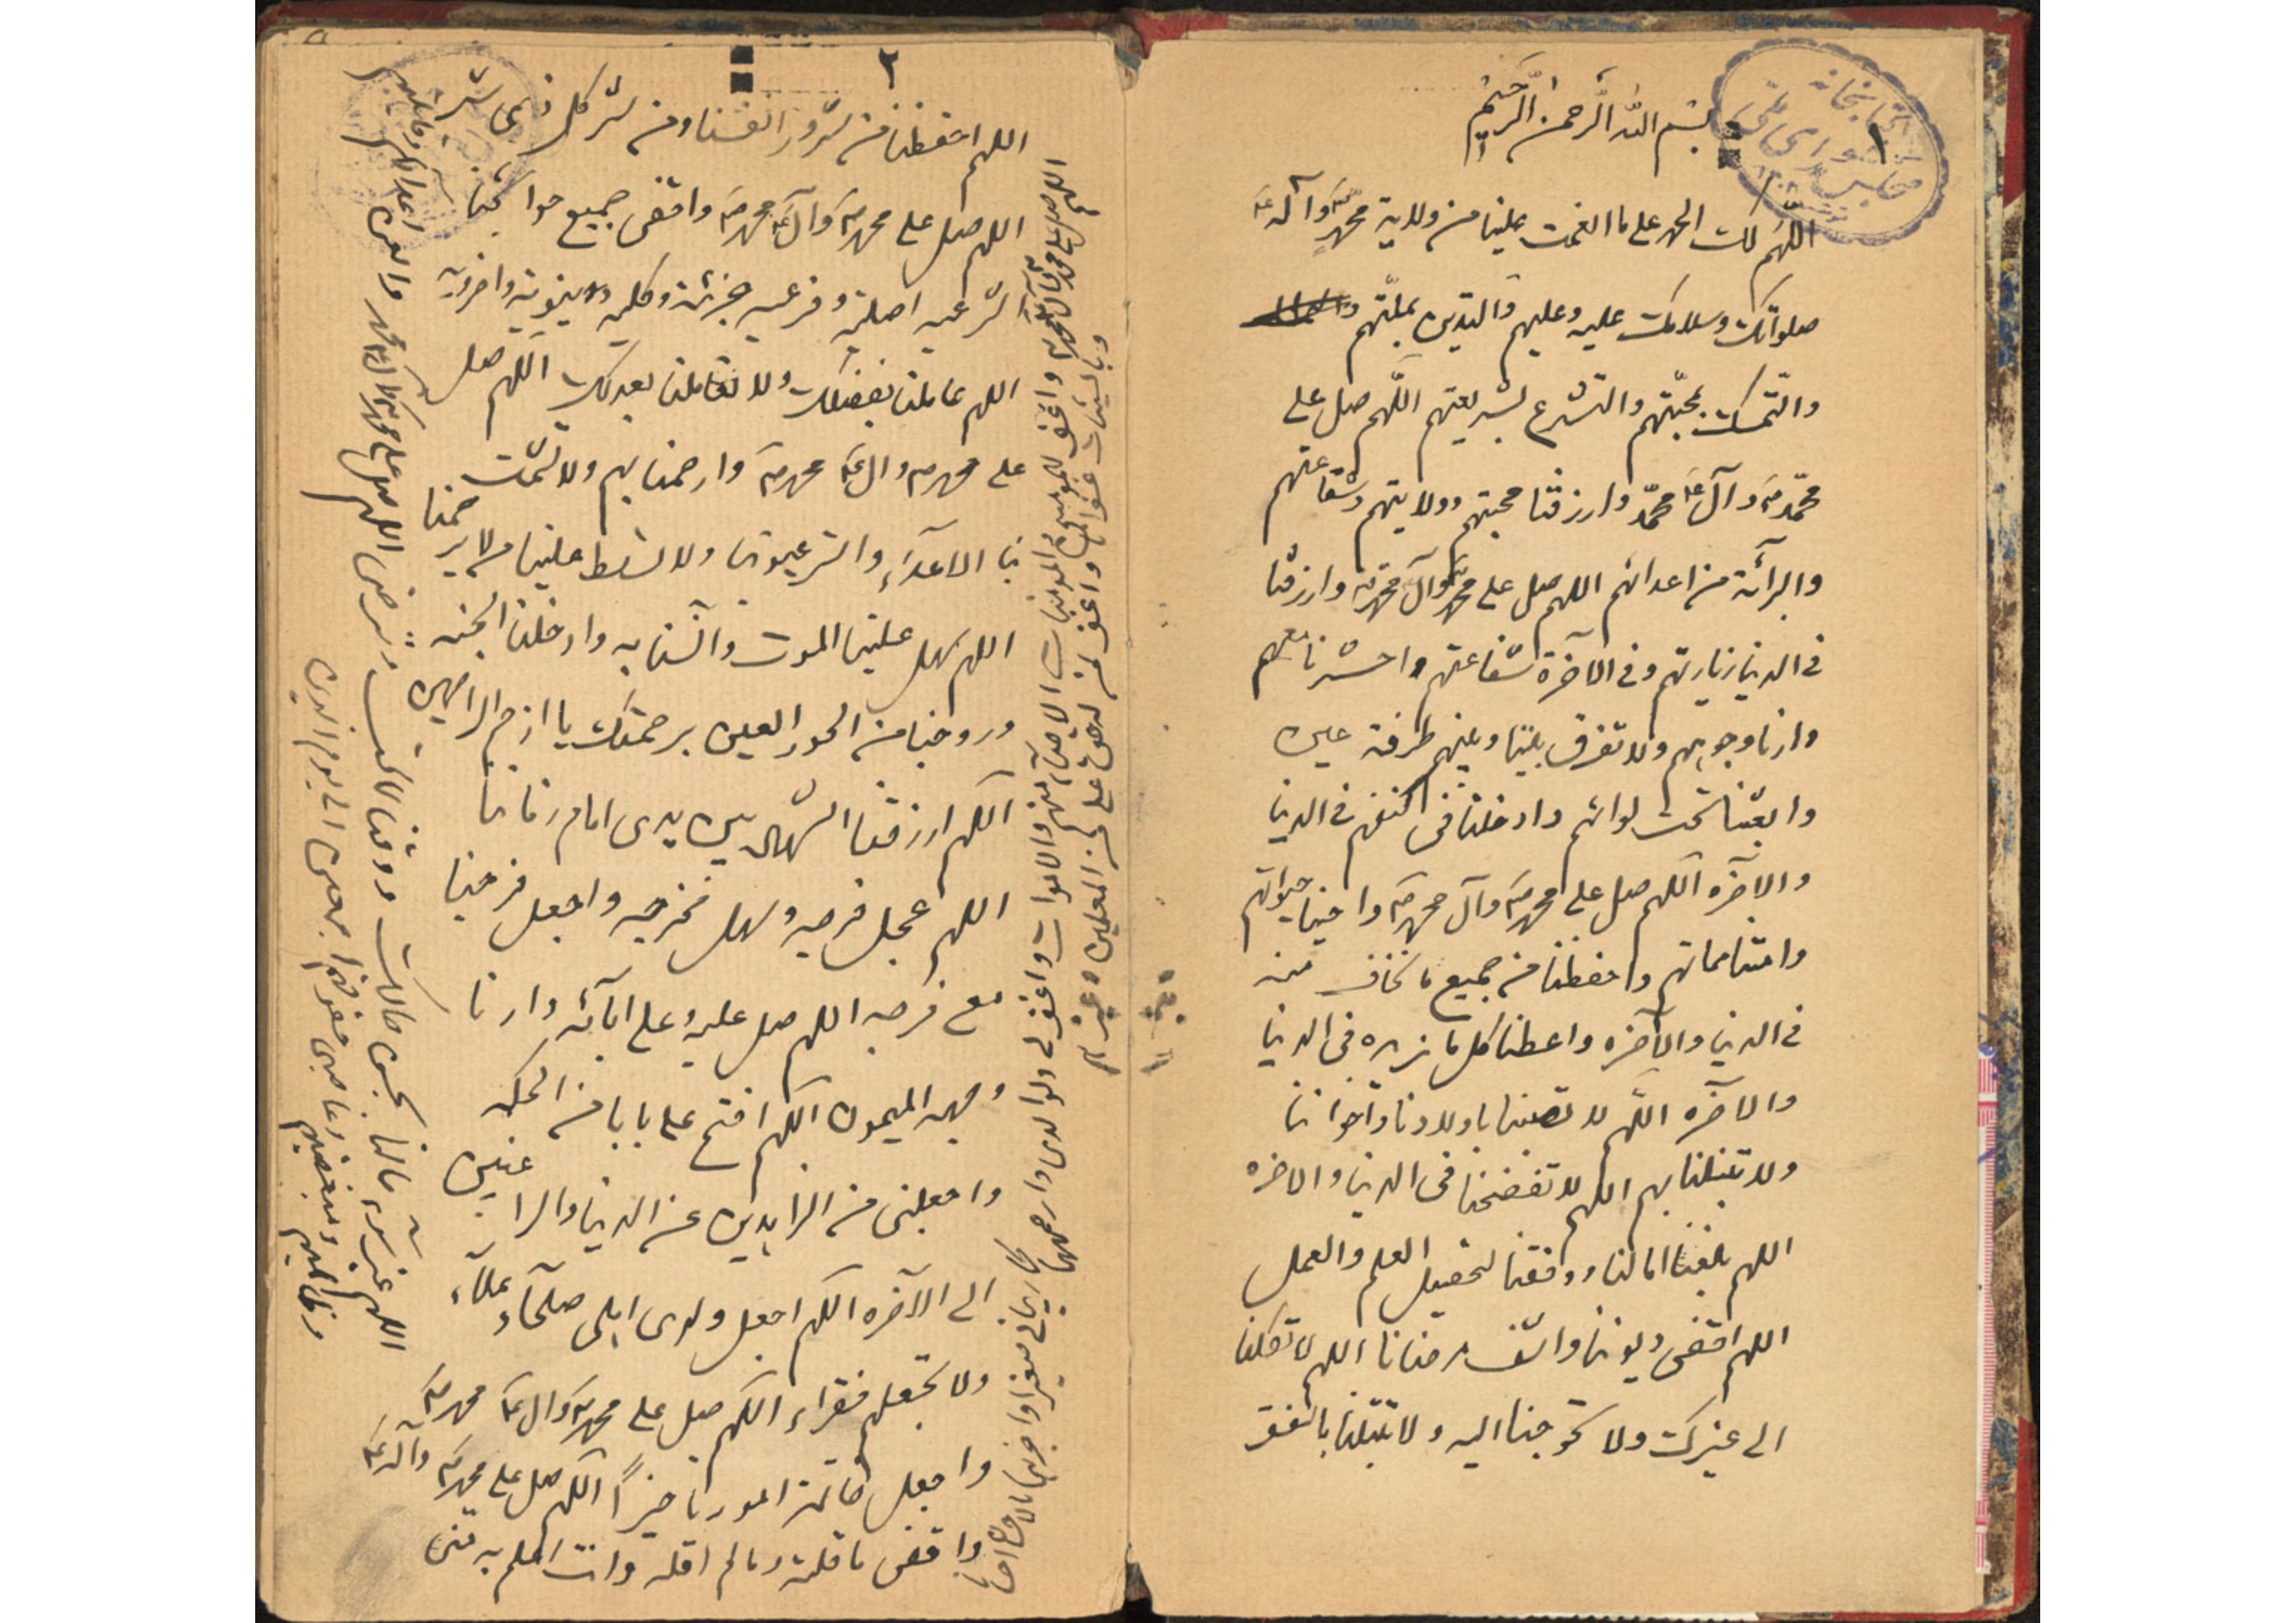 ١
كتابخانه
مجلس شورای ملی
بسم الله الرحمن الرحيم
اللهم لك الحمد على ما انعمت علينا من ولاية محمد ص وآله ع
صلواتك وسلامك عليه وعليهم والتدين بملتهم
والتمسك بمحبتهم والتشرع بشريعتهم اللهم صل على
محمد ص وآل ع محمد وارزقنا محبتهم وولايتهم وشفاعتهم
والبرائة من اعدائهم اللهم صل على محمد ص وآل محمد ص وارزقنا
فى الدنيا زيارتهم وفى الآخرة شفاعتهم واحشرنا معهم
وارنا وجوههم ولا تفرق بيننا وبينهم طرفة عين
وابعثنا تحت لوائهم وادخلنا فى كنفهم فى الدنيا
والآخره اللهم صل على محمد ص وآل محمد ص واحينا حيواتهم
وامتنا مماتهم واحفظنا من جميع ما نخاف منه
فى الدنيا والآخره واعطنا كل ما نريده فى الدنيا
والآخره اللهم لا تصبنا باولادنا واخواننا
ولا تبتلنا بهم اللهم لا تفضحنا فى الدنيا والاخره
اللهم بلغنا امالنا ووفقنا لتحصيل العلم والعمل
اللهم اقض ديوننا واشف مرضانا اللهم لا تكلنا
الى غيرك ولا تحوجنا اليه ولا تبتلنا بالفقر
٢
اللهم احفظنا من شرور انفسنا ومن شر كل ذى شر
اللهم صل على محمد ص وآل ع محمد ص واقض جميع حوائجنا
الشرعيه اصليه وفرعيه جزئية وكليه دنيويه واخرويه
اللهم عاملنا بفضلك ولا تعاملنا بعدلك اللهم صل
على محمد ص وال ع محمد ص وارحمنا بهم ولا تشمت
بنا الاعداء ولا تسلط علينا من لا يرحمنا
اللهم سهل علينا الموت وآنسنا به وادخلنا الجنه
وزوجنا من الحور العين برحمتك يا ارحم الراحمين
اللهم ارزقنا بين يدى امام زماننا
اللهم عجل فرجه وسهل مخرجه واجعل فرجنا
مع فرجه اللهم صل عليه وعلى ابائه وارنا
وجهه الميمون اللهم افتح على بابا من الحكمه
واجعلنى من الزاهدين عن الدنيا والراغبين
الى الآخره اللهم اجعل ولدى اهلى صلحاء علماء
ولا تجعلهم فقراء اللهم صل على محمد ص وال ع محمد ص
واجعل خاتمة امورنا خيراً اللهم صل على محمد ص وآله ع
واقض ما قلته وما لم اقله وانت اعلم به منى
اللهم صل على محمد ص وآل محمد ص واغفر للمؤمنين والمؤمنات الاحياء منهم والاموات واغفر لى ولوالدى وارحمهما كما ربيانى صغيرا واجزهما بالاحسان احسانا
وبالسيئات غفرانا واغفر
اللهم غير سوء حالنا بحسن حالك اللهم صل على محمد ص وآل محمد